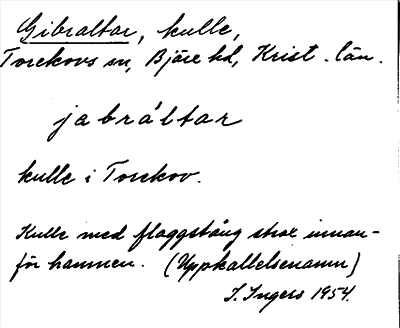 Gibraltar, kulle,
Torekovs sn, Bjäre hd, Krist. län.
jabráltar
kulle i Torekov.
Kulle med flaggstång strax innan-
för hamnen. (Uppkallelsenamn)
I. Ingers 1954.